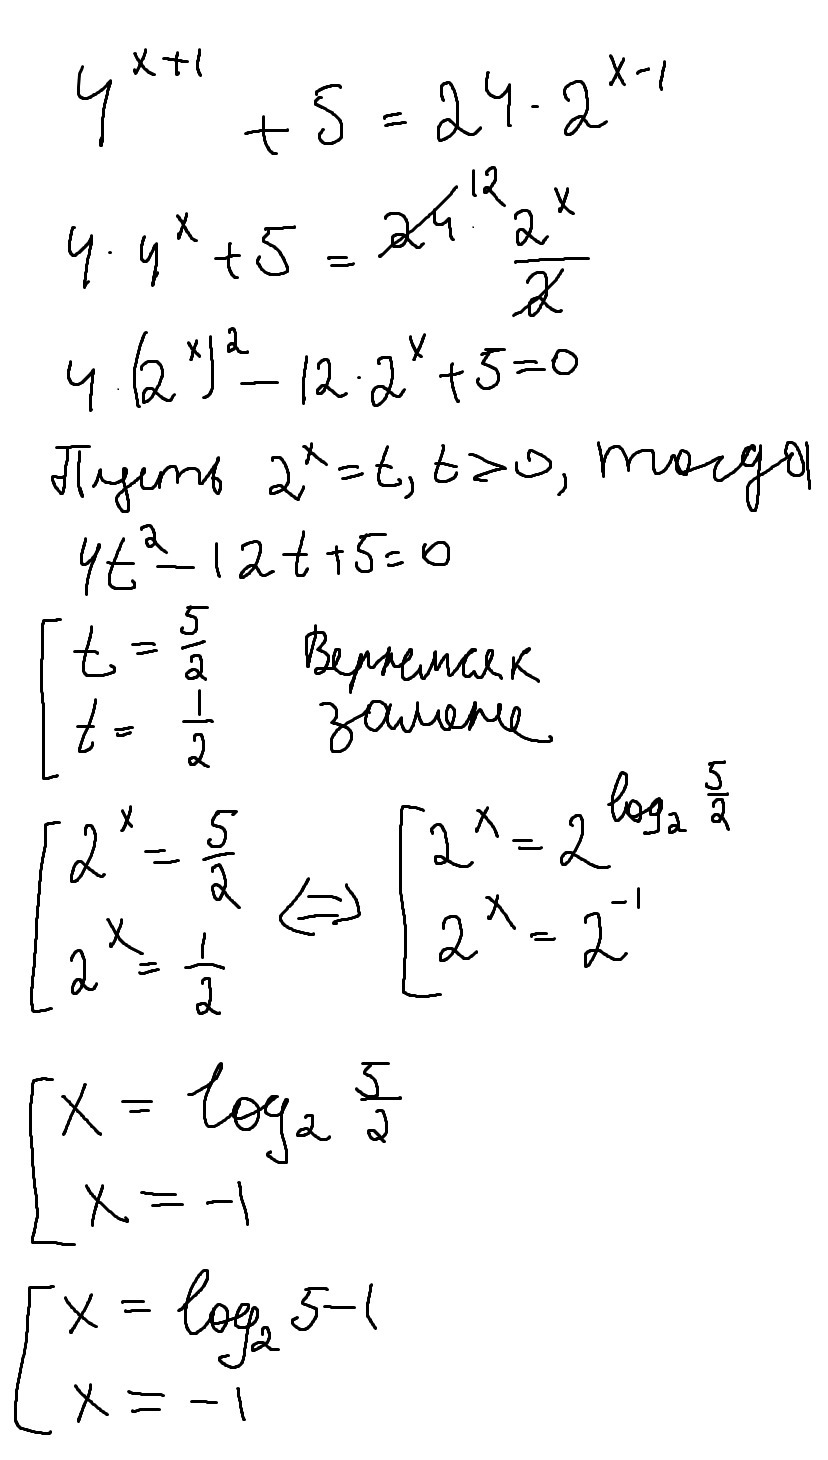 4^{x+1} + 5 = 24 · 2^{x-1}
4 · 4^x + 5 = 24 12 · 2^x/2
4 · (2^x)^2 - 12 · 2^x + 5 = 0
Пусть 2^x = t, t > 0, тогда
4t^2 - 12t + 5 = 0
[ t = 5/2
t = 1/2
Вернемся к
замене
[ 2^x = 5/2
2^x = 1/2
⇔
[ 2^x = 2^{log_2 5/2}
2^x = 2^{-1}
[ x = log_2 5/2
x = -1
[ x = log_2 5 - 1
x = -1